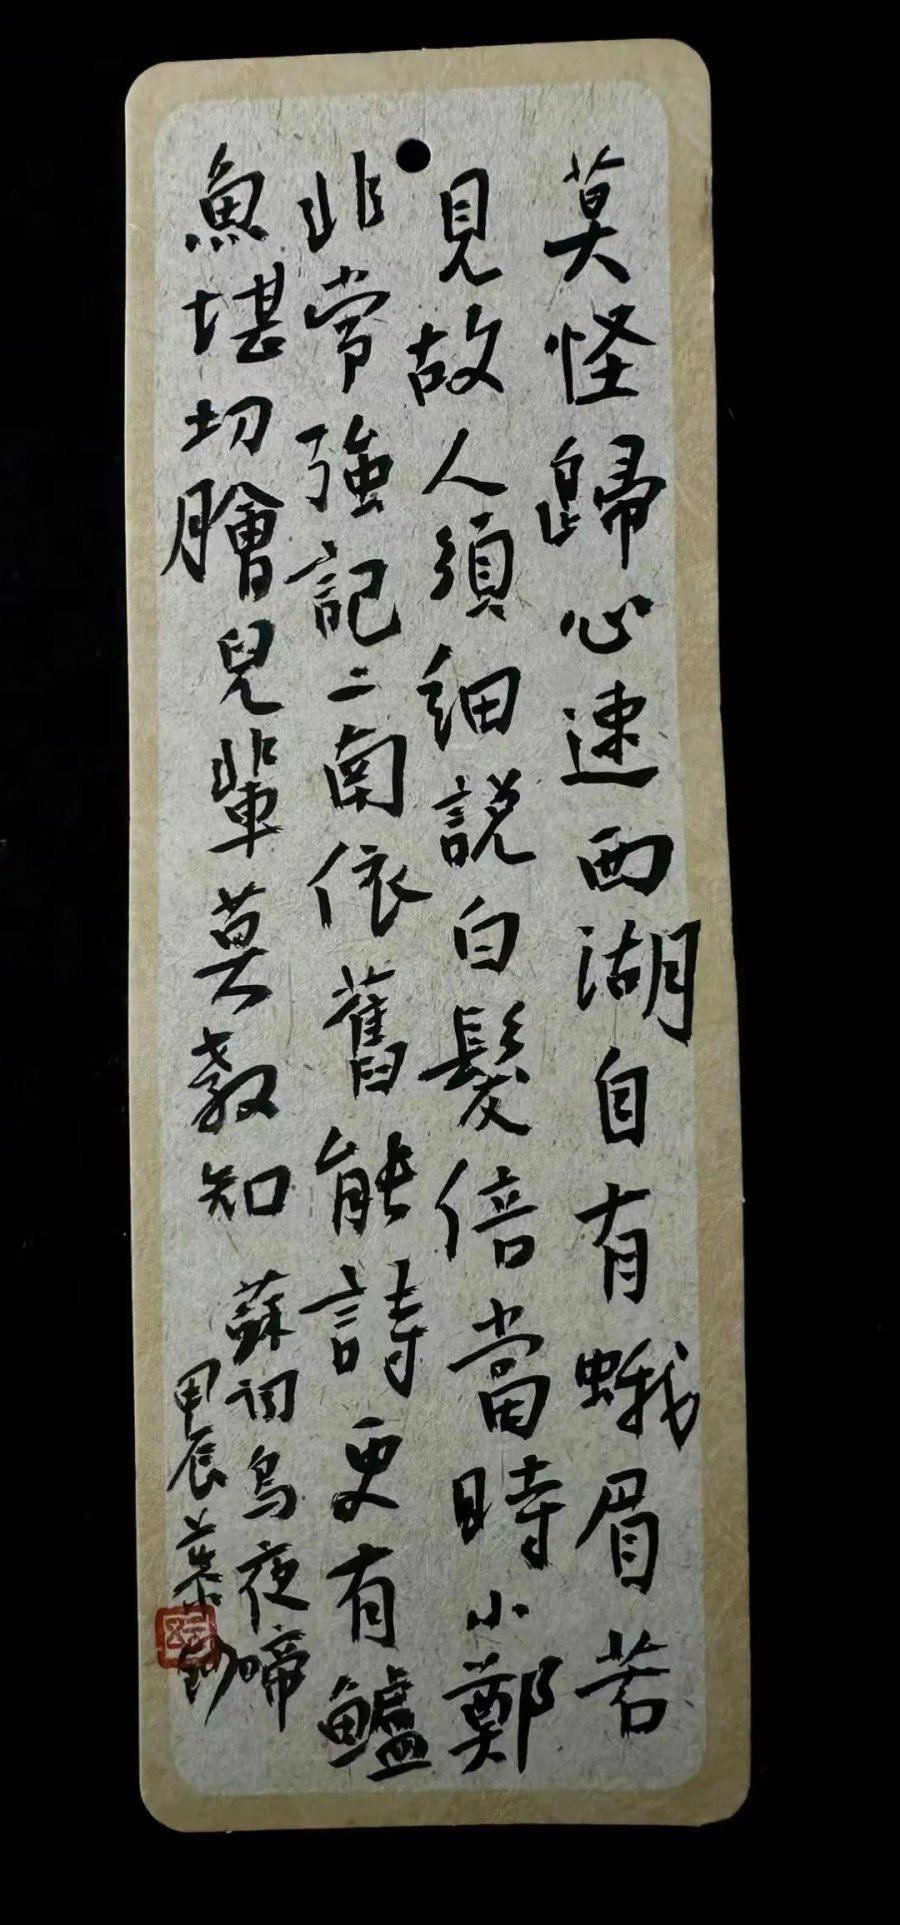 莫怪歸心速西湖自有蛾眉若
見故人須細説白髮倍當時小鄭
非常強記二南依舊能詩更有鱸
魚堪切膾兒輩莫教知
蘇詞烏夜啼
甲辰慕